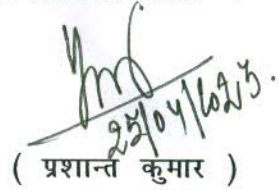 25/04/2023.
( प्रशान्त कुमार )